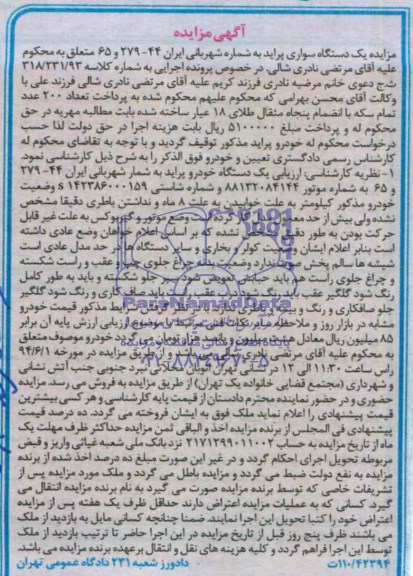 آگهی مزایده
مزایده یک دستگاه سواری پراید به شماره شهربانی ایران ۴۴-۲۷۹ و ۶۵ متعلق به محکوم
علیه آقای مرتضی نادری شالی، در خصوص پرونده اجرایی به شماره کلاسه ۳۱۸/۲۳۱/۹۳
ث.ج دعوی خانم مرضیه نادری فرزند کریم علیه آقای مرتضی نادری شالی فرزند علی با
وکالت آقای محسن بهرامی که محکوم علیهم محکوم شده به پرداخت تعداد ۲۰۰ عدد
تمام سکه با انضمام پنجاه مثقال طلای ۱۸ عیار ساخته شده بابت مطالبه مهریه در حق
محکوم له و پرداخت مبلغ ۵۱۰۰۰۰۰ ریال بابت هزینه اجرا در حق دولت لذا حسب
درخواست محکوم له خودرو پراید مذکور توقیف گردید و با توجه به تقاضای محکوم له
کارشناس رسمی دادگستری تعیین و خودرو فوق الذکر را به شرح ذیل کارشناسی نمود.
۱- نظریه کارشناسی: ارزیابی یک دستگاه خودرو پراید به شمار شهربانی ایران ۴۴-۲۷۹
و ۶۵ به شماره موتور ۸۸۱۳۲۰۸۴۱۴۴ و شماره شاستی s۱۴۲۳۸۶۰۰۰۱۵۹ وضعیت
خودرو مذکور کیلومتر به علت خوابیدن به علت ۸ ماه و نداشتن باطری دقیقا مشخص
نشده ولی بیش از حد معمول کار کرده است وضع موتور و گیربوکس به علت غیر قابل
حرکت بودن به طور دقیق نشده که بر اساس اعلام خواهان وضع عادی داشته
است بنابر اعلام ایشان وضعیت کولر و بخاری و سایر دستگاه ها در حد مدل عادی است
شیشه ها سالم پخش صوت ندارد وضعیت بدنه چراغ جلوی عقب و راست شکسته
و چراغ جلوی راست هم باید تعویض شود جلو شکسته و باید به طور کامل
رنگ شود گلگیر عقب باید رنگ شود عقب باید صاف کاری و رنگ شود گلگیر
جلو صافکاری و رنگ و بیمه و باطری ندارد با در نظر گرفتن شرایط مذکور قیمت خودرو
مشابه در بازار روز و ملاحظه سایر نکات فنی مرتبط با موضوع ارزیابی ارزش پایه آن برابر
۸۵ میلیون ریال معادل هشت میلیون و پانصد هزار تومان می گردد خودرو موصوف متعلق
به محکوم علیه آقای مرتضی نادری شالی می باشد و از طریق مزایده در مورخه ۹۴/۶/۱
راس ساعت ۱۱:۳۰ الی ۱۲ در جنوبی جنب آتش نشانی
و شهرداری (مجتمع قضایی خانواده یک تهران) از طریق مزایده به فروش می رسد. مزایده
حضوری و در حضور نماینده محترم دادستان از قیمت پایه کارشناسی و هر کسی بیشترین
قیمت پیشنهادی را اعلام نماید ملک فوق به ایشان فروخته می گردد. ده درصد قیمت
پیشنهادی فی المجلس از برنده مزایده اخذ و الباقی ثمن مزایده حداکثر ظرف مهلت یک
ماه از تاریخ مزایده به حساب ۲۱۷۱۲۹۹۰۱۱۰۰۲ نزد بانک ملی شعبه غیاثی واریز و فیض
مربوطه تحویل اجرای احکام گردد و در غیر این صورت مبلغ ده درصد اخذ شده از برنده
مزایده به نفع دولت ضبط می گردد و مزایده باطل می گردد و ملک مورد مزایده پس از
تشریفات خاصی که توسط برنده مزایده صورت می گیرد به نام برنده مزایده انتقال می
گیرد. کسانی که به عملیات مزایده اعتراض دارند حداقل ظرف یک هفته پس از مزایده
اعتراض خود را کتبا تحویل این اجرا نمایند. ضمنا چنانچه کسانی مایل به بازدید از ملک
می باشند ظرف پنج روز قبل از تاریخ مزایده در این اجرا حاضر تا ترتیب بازدید از ملک
توسط این اجرا فراهم گردد و کلیه هزینه های نقل و انتقال برعهده برنده مزایده می باشد.
۱۱۰/۴۲۳۹۴ت دادورز شعبه ۲۳۱ دادگاه عمومی تهران
ParsNamadData